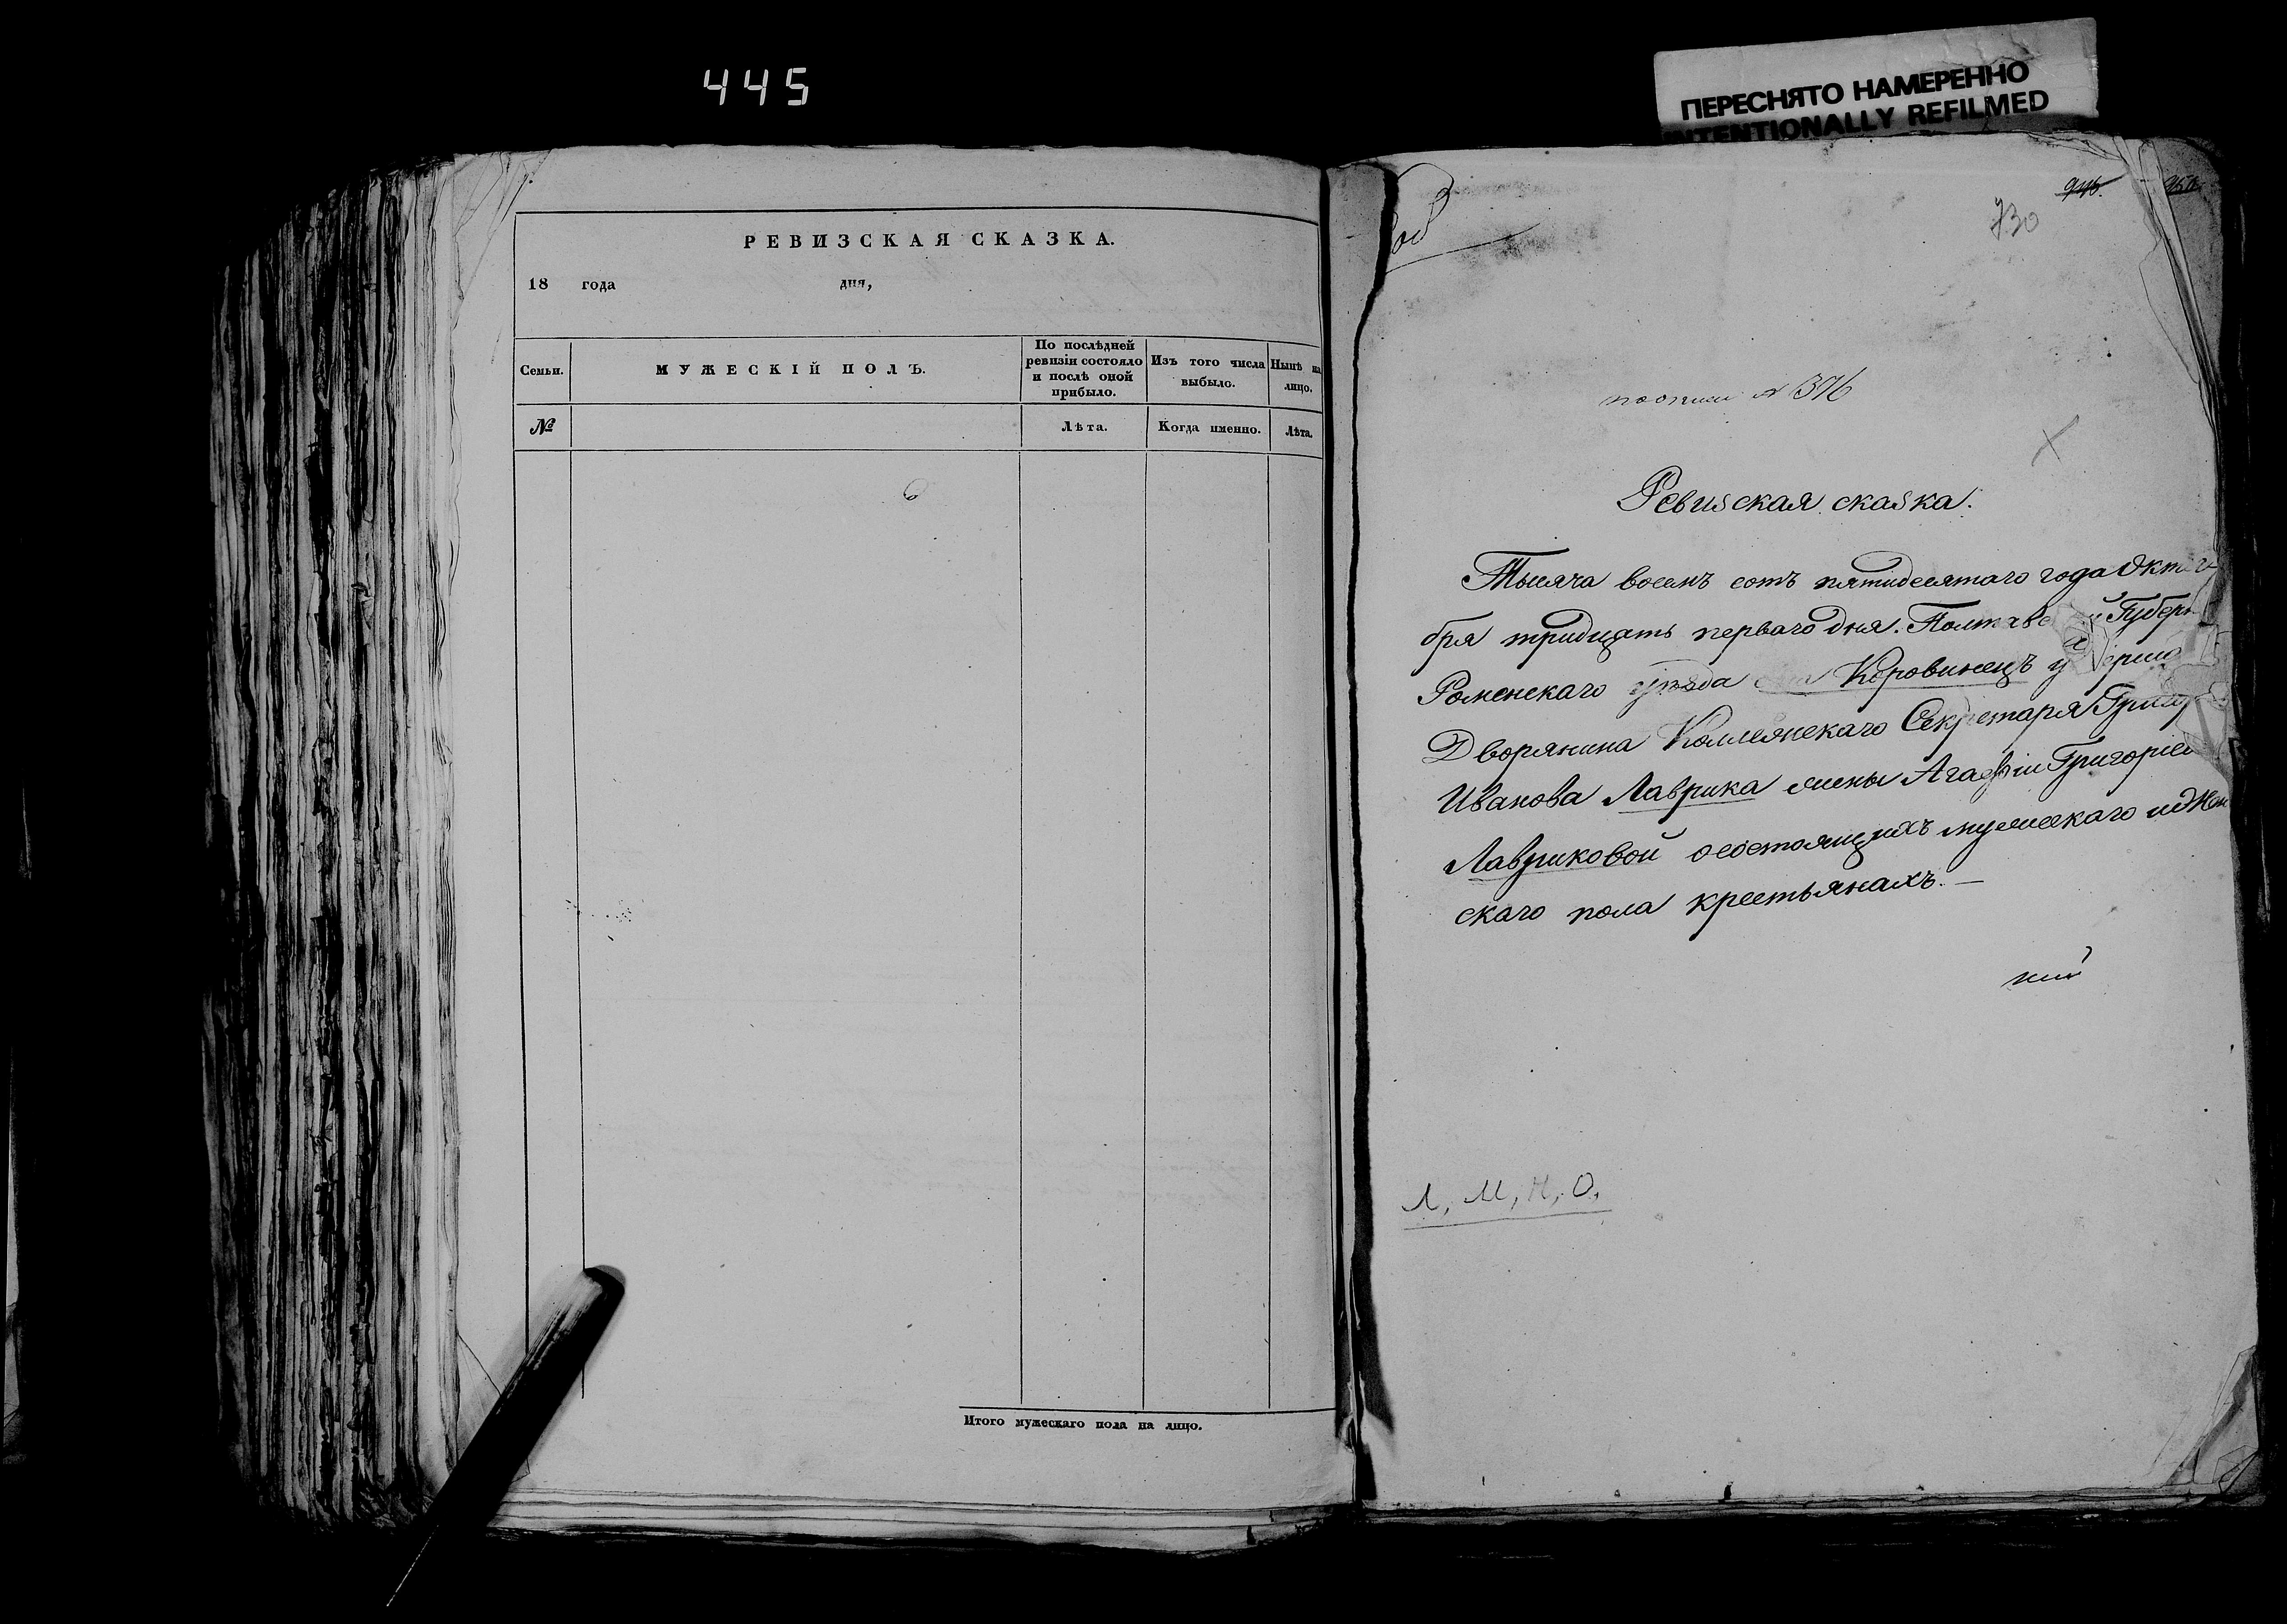 445
ПЕРЕСНЯТО НАМЕРЕННО
INTENTIONALLY REFILMED
РЕВИЗСКАЯ СКАЗКА.
18 года дня,
Семьи.
МУЖЕСКІЙ ПОЛЪ.
По послѣдней
ревизіи состояло
и послѣ оной
прибыло.
Изъ того числа
выбыло.
Нынѣ на
лицо.
№
Лѣта.
Когда именно.
Лѣта.
Итого мужескаго пола на лицо.
946.
730
по описи № 396
Ревизская сказка.
Тысяча восемъ сотъ пятидесятаго года Октя-
бря тридцать перваго дня. Полтавс й Губерн
Роменскаго уѣзда Коровинецъ
Дворянина Коллежскаго Секретаря Григ
Иванова Лаврика жены Агафіи Григоріев
Лавриковой о состоящихъ мужескаго и Жен
скаго пола крестьянахъ. —
Л, М, Н, О,